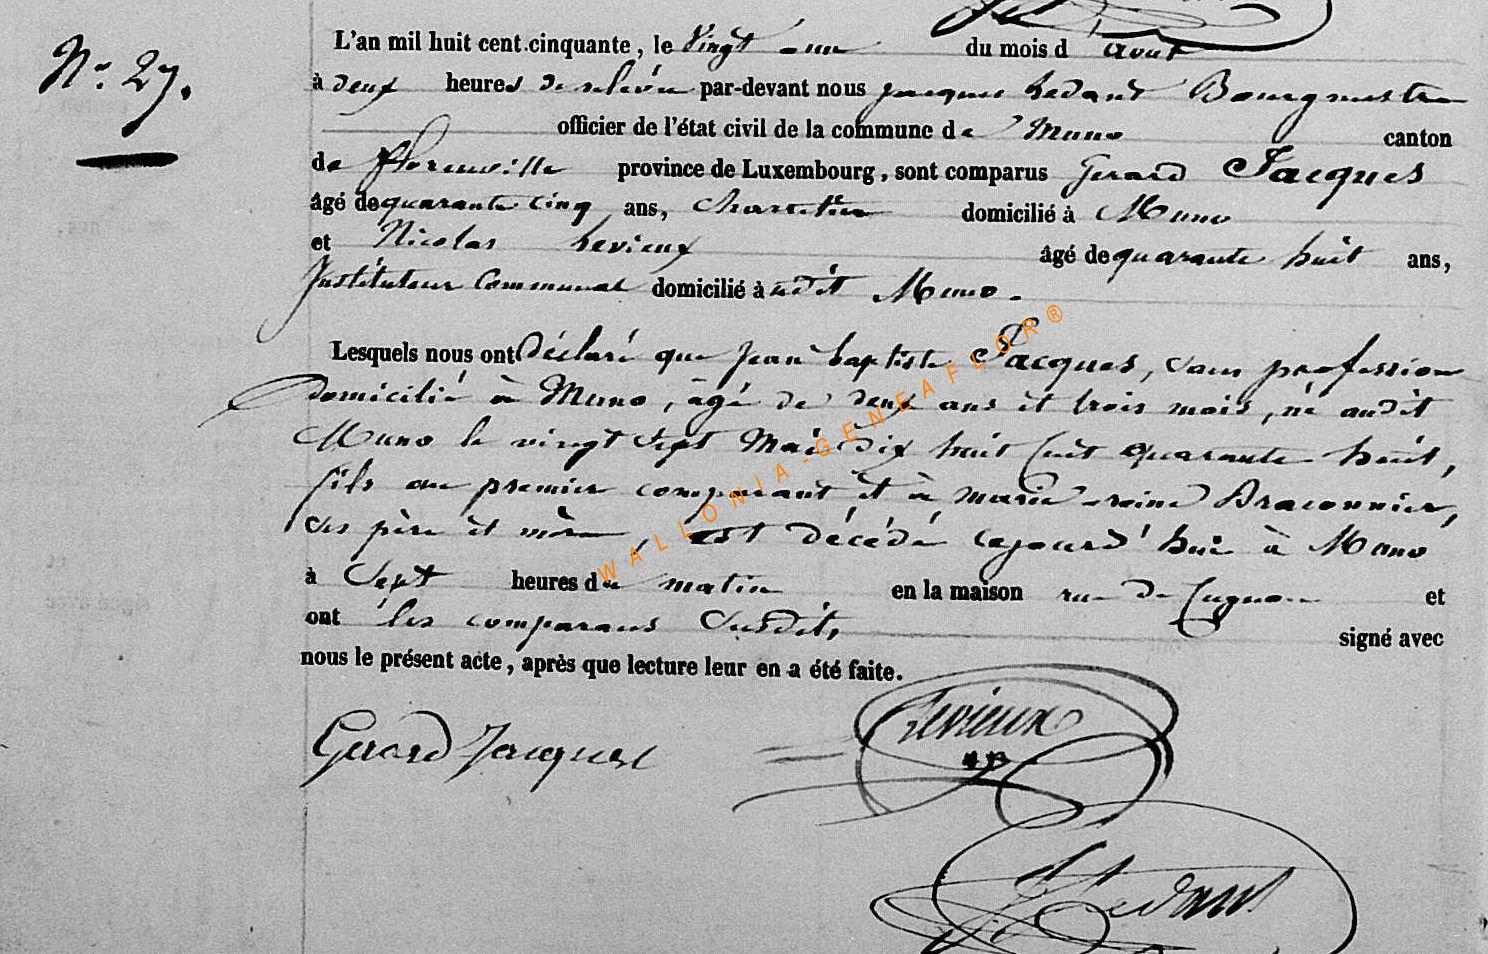 N° 27.
L'an mil huit cent cinquante, le Vingt un du mois d'août
à deux heures de relevée par-devant nous Jacques Ledant Bourgmestre
officier de l'état civil de la commune de Muno canton
de Florenville province de Luxembourg, sont comparus Gerard Jacques
âgé de quarante cinq ans, domicilié à Muno
et Nicolas Levieux âgé de quarante huit ans,
Instituteur Communal domicilié à udit Muno.
Lesquels nous ont Déclaré que Jean baptiste Jacques, sans profession
Domicilié à Muno, âgé de deux ans et trois mois, né audit
Muno le vingt sept Mai dix huit Cent quarante huit,
fils au premier comparant et à marie reine Braconnier,
ses père et mère, est décédé cejourd'hui à Muno
à Sept heures du matin en la maison rue de et
ont les comparans susdits, signé avec
nous le présent acte, après que lecture leur en a été faite.
Gerard Jacques
Levieux
J Ledant
WALLONIA-GENEAFLOR®